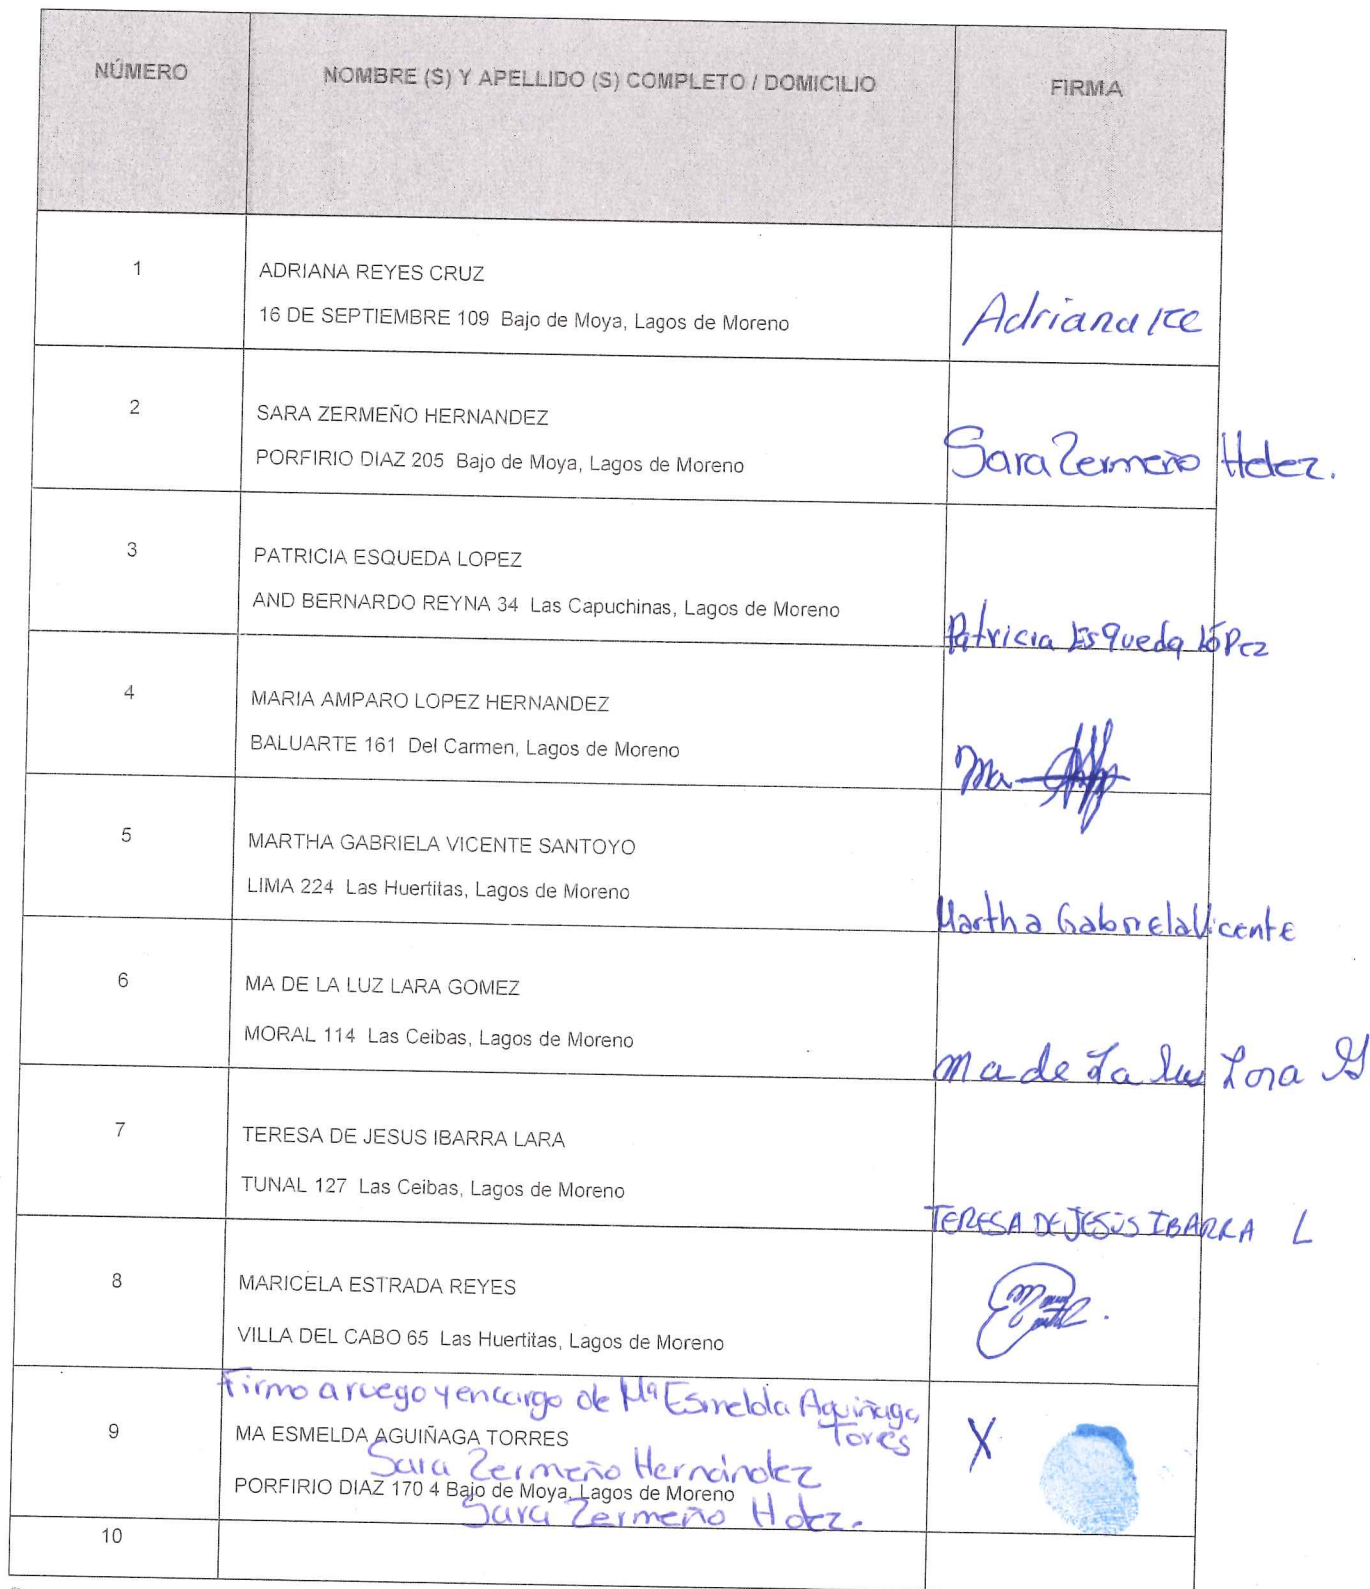 NÚMERO NOMBRE (S) Y APELLIDO (S) COMPLETO / DOMICILIO FIRMA
1 ADRIANA REYES CRUZ
16 DE SEPTIEMBRE 109 Bajo de Moya, Lagos de Moreno
Adriana
2 SARA ZERMEÑO HERNANDEZ
PORFIRIO DIAZ 205 Bajo de Moya, Lagos de Moreno
Sara Zermeño Hdez.
3 PATRICIA ESQUEDA LOPEZ
AND BERNARDO REYNA 34 Las Capuchinas, Lagos de Moreno
Patricia Esqueda López
4 MARIA AMPARO LOPEZ HERNANDEZ
BALUARTE 161 Del Carmen, Lagos de Moreno
Ma
5 MARTHA GABRIELA VICENTE SANTOYO
LIMA 224 Las Huertitas, Lagos de Moreno
Martha Gabriela Vicente
6 MA DE LA LUZ LARA GOMEZ
MORAL 114 Las Ceibas, Lagos de Moreno
Ma de La Lus Lara G
7 TERESA DE JESUS IBARRA LARA
TUNAL 127 Las Ceibas, Lagos de Moreno
TERESA DE JESÚS IBARRA L
8 MARICELA ESTRADA REYES
VILLA DEL CABO 65 Las Huertitas, Lagos de Moreno
Firmo a ruego y encargo de Mª Esmelda Aguiñaga
Torres
9 MA ESMELDA AGUIÑAGA TORRES X
Sara Zermeño Hernández
PORFIRIO DIAZ 170 4 Bajo de Moya, Lagos de Moreno
Sara Zermeño Hdez.
10